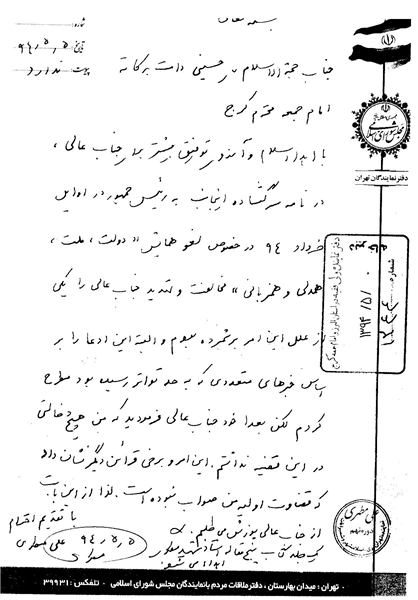 بسمه تعالی
شماره:
تاریخ: ۹۴/۵/۵
پیوست: ندارد
جمهوری اسلامی ایران
مجلس شورای اسلامی
دفتر نمایندگان تهران
جناب حجة الاسلام حسینی دامت برکاته
امام جمعه محترم کرج
با اهداء سلام و آرزوی توفیق بیشتر برای جناب عالی،
در نامه سرگشاده اینجانب به رئیس جمهور در اوایل
خرداد ۹۴ در خصوص لغو همایش «دولت، ملت،
همدلی و همزبانی» مخالفت و تهدید جناب عالی را یکی
از علل این امر برشمرده بودم و البته این ادعا را بر
اساس خبرهای متعددی که به حد تواتر رسیده بود مطرح
کردم لکن بعدا خود جناب عالی فرمودید که من هیچ دخالتی
در این قضیه نداشتم. این امر و برخی قرائن دیگر نشان داد
که قضاوت اولیه من صواب نبوده است. لذا از این بابت
از جناب عالی پوزش می طلبم.
با تقدیم احترام
علی مطهری
۹۴/۵/۵
شماره
۱۳۹۴/۵/
علی مطهری
تهران: میدان بهارستان، دفتر ملاقات مردم با نمایندگان مجلس شورای اسلامی - تلفکس: ۳۹۹۳۱